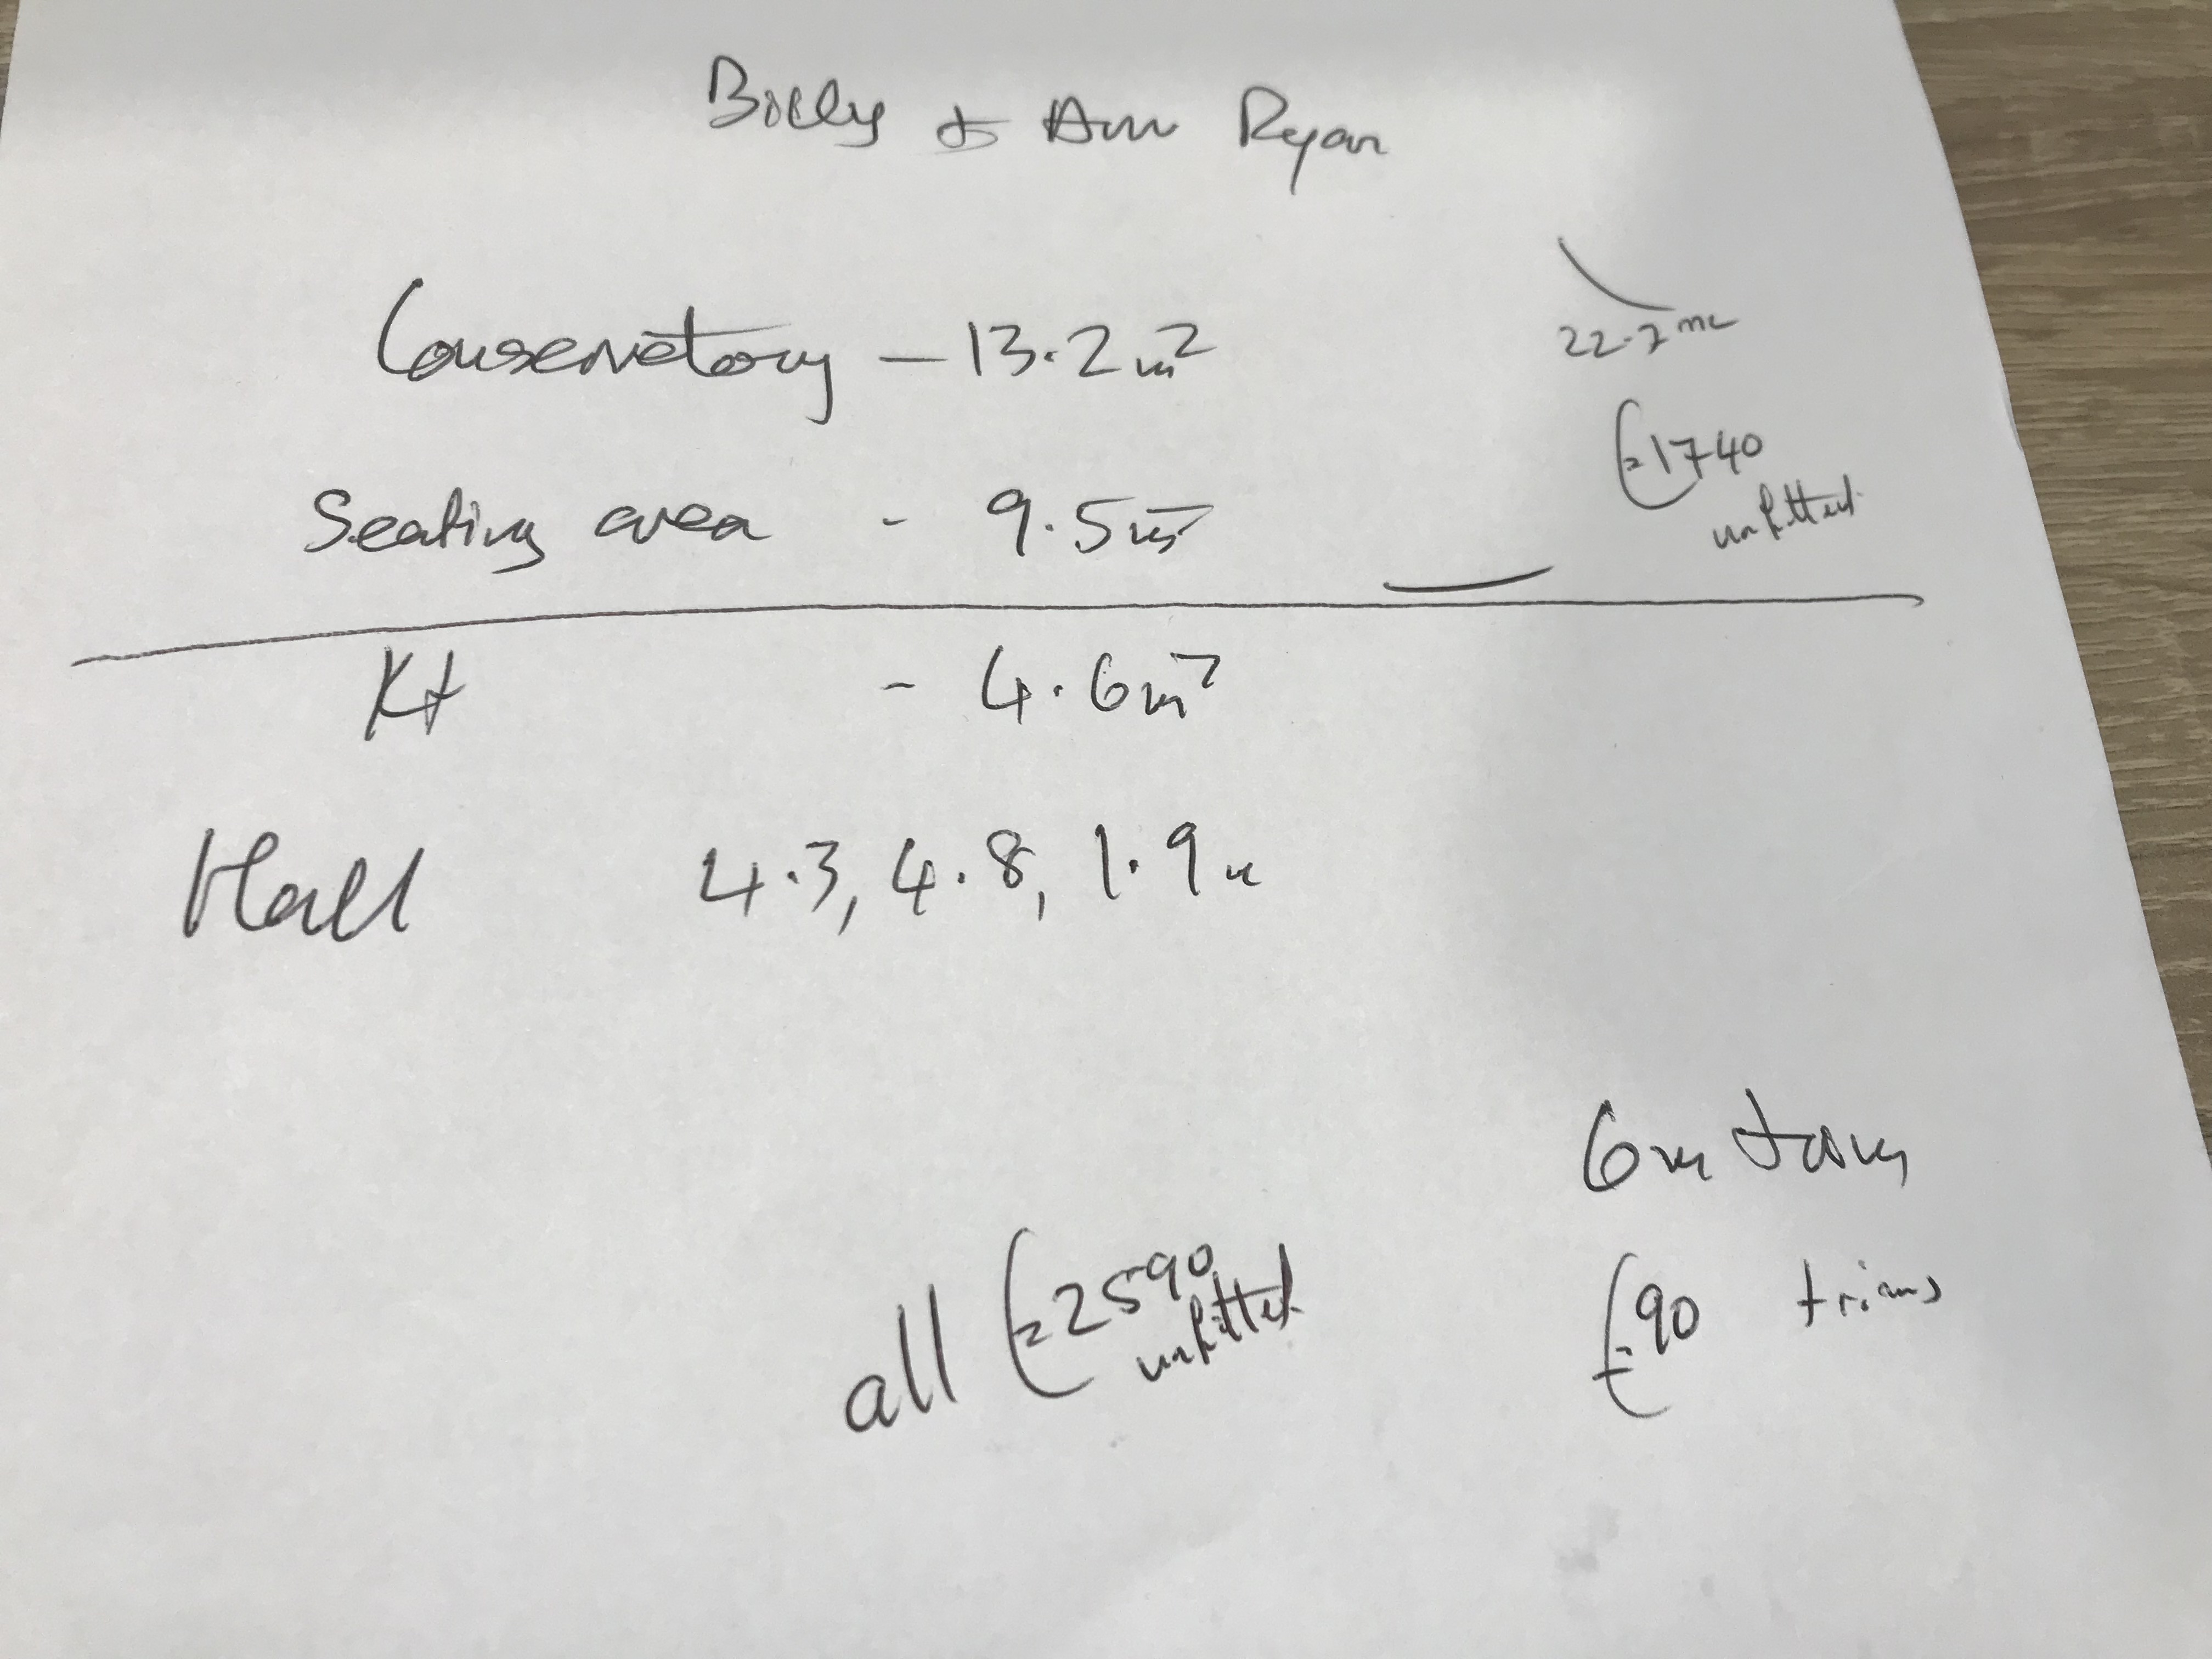 Billy & Ann Ryan
Conservatory - 13.2m²
22.7m²
€1740
unfitted
Seating area - 9.5m²
Kt - 4.6m²
Hall 4.3, 4.8, 1.9m
6m trim
all €2590
unfitted
€90 trims